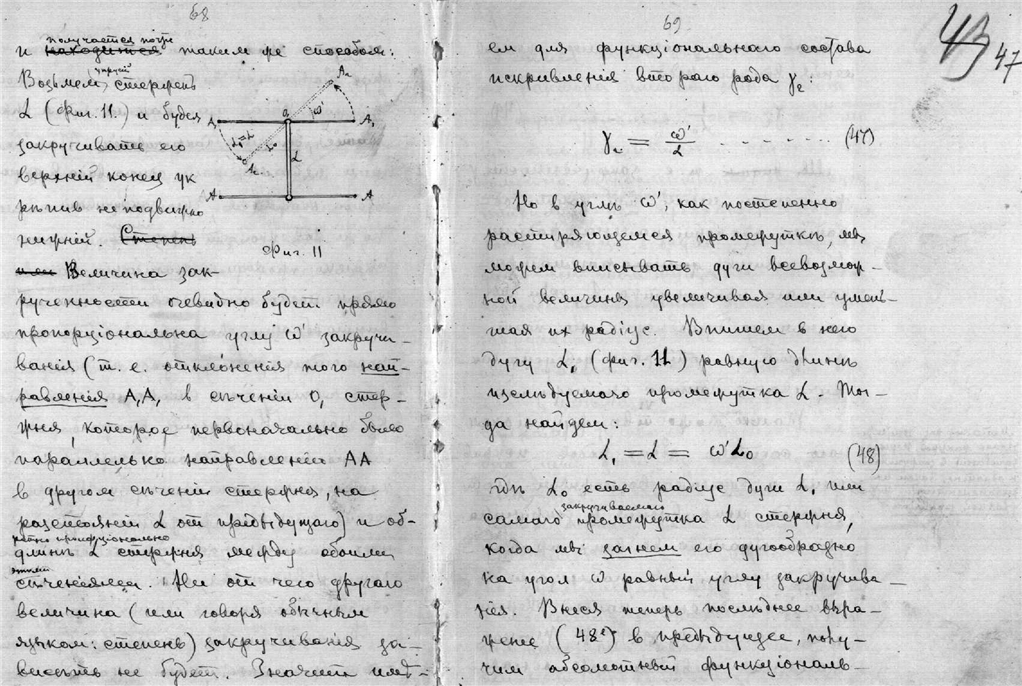 68
получается почти
и находится таким же способом:
упругий
Возьмем стержень
L (Фиг. 11) и будем
закручивать его
верхній конец ук
рѣпив неподвижно
нижній. Степень
или Величина зак-
Фиг. 11
рученности очевидно будет прямо
пропорціональна углу ω' закручи-
ванія (т. е. отклоненія того нап-
равленія A₁A₁ в сѣченіи O₁ стер-
жня, которое первоначально было
параллельно направленію AA
в другом сѣченіи стержня, на
разстояніи L от предыдущаго) и об-
ратно пропорціонально
длинѣ L стержня между обоими
этими
сѣченіями. Ни от чего другого
величина (или говоря обычным
языком: степень) закручиванія за-
висѣть не будет. Значит имѣ-
69
47
ем для функціональнаго состава
искривленія второго рода γ₂:
γ₂ = ω'/L (47)
Но в углѣ ω', как постепенно
расширяющемся промежуткѣ, мы
можем вписывать дуги всевозмож-
ной величины увеличивая или умень-
шая их радіус. Впишем в него
дугу L₁ (фиг. 11) равную длинѣ
изслѣдуемаго промежутка L. Тог-
да найдем:
L₁ = L = ω'L₀ (48)
гдѣ L₀ есть радіус дуги L₁ или
закручиваемаго
самаго промежутка L стержня,
когда мы загнем его дугообразно
на угол ω равный углу закручива-
нія. Внеся теперь послѣднее выра-
жение (48) в предыдущее, полу-
чим абсолютный функціональ-